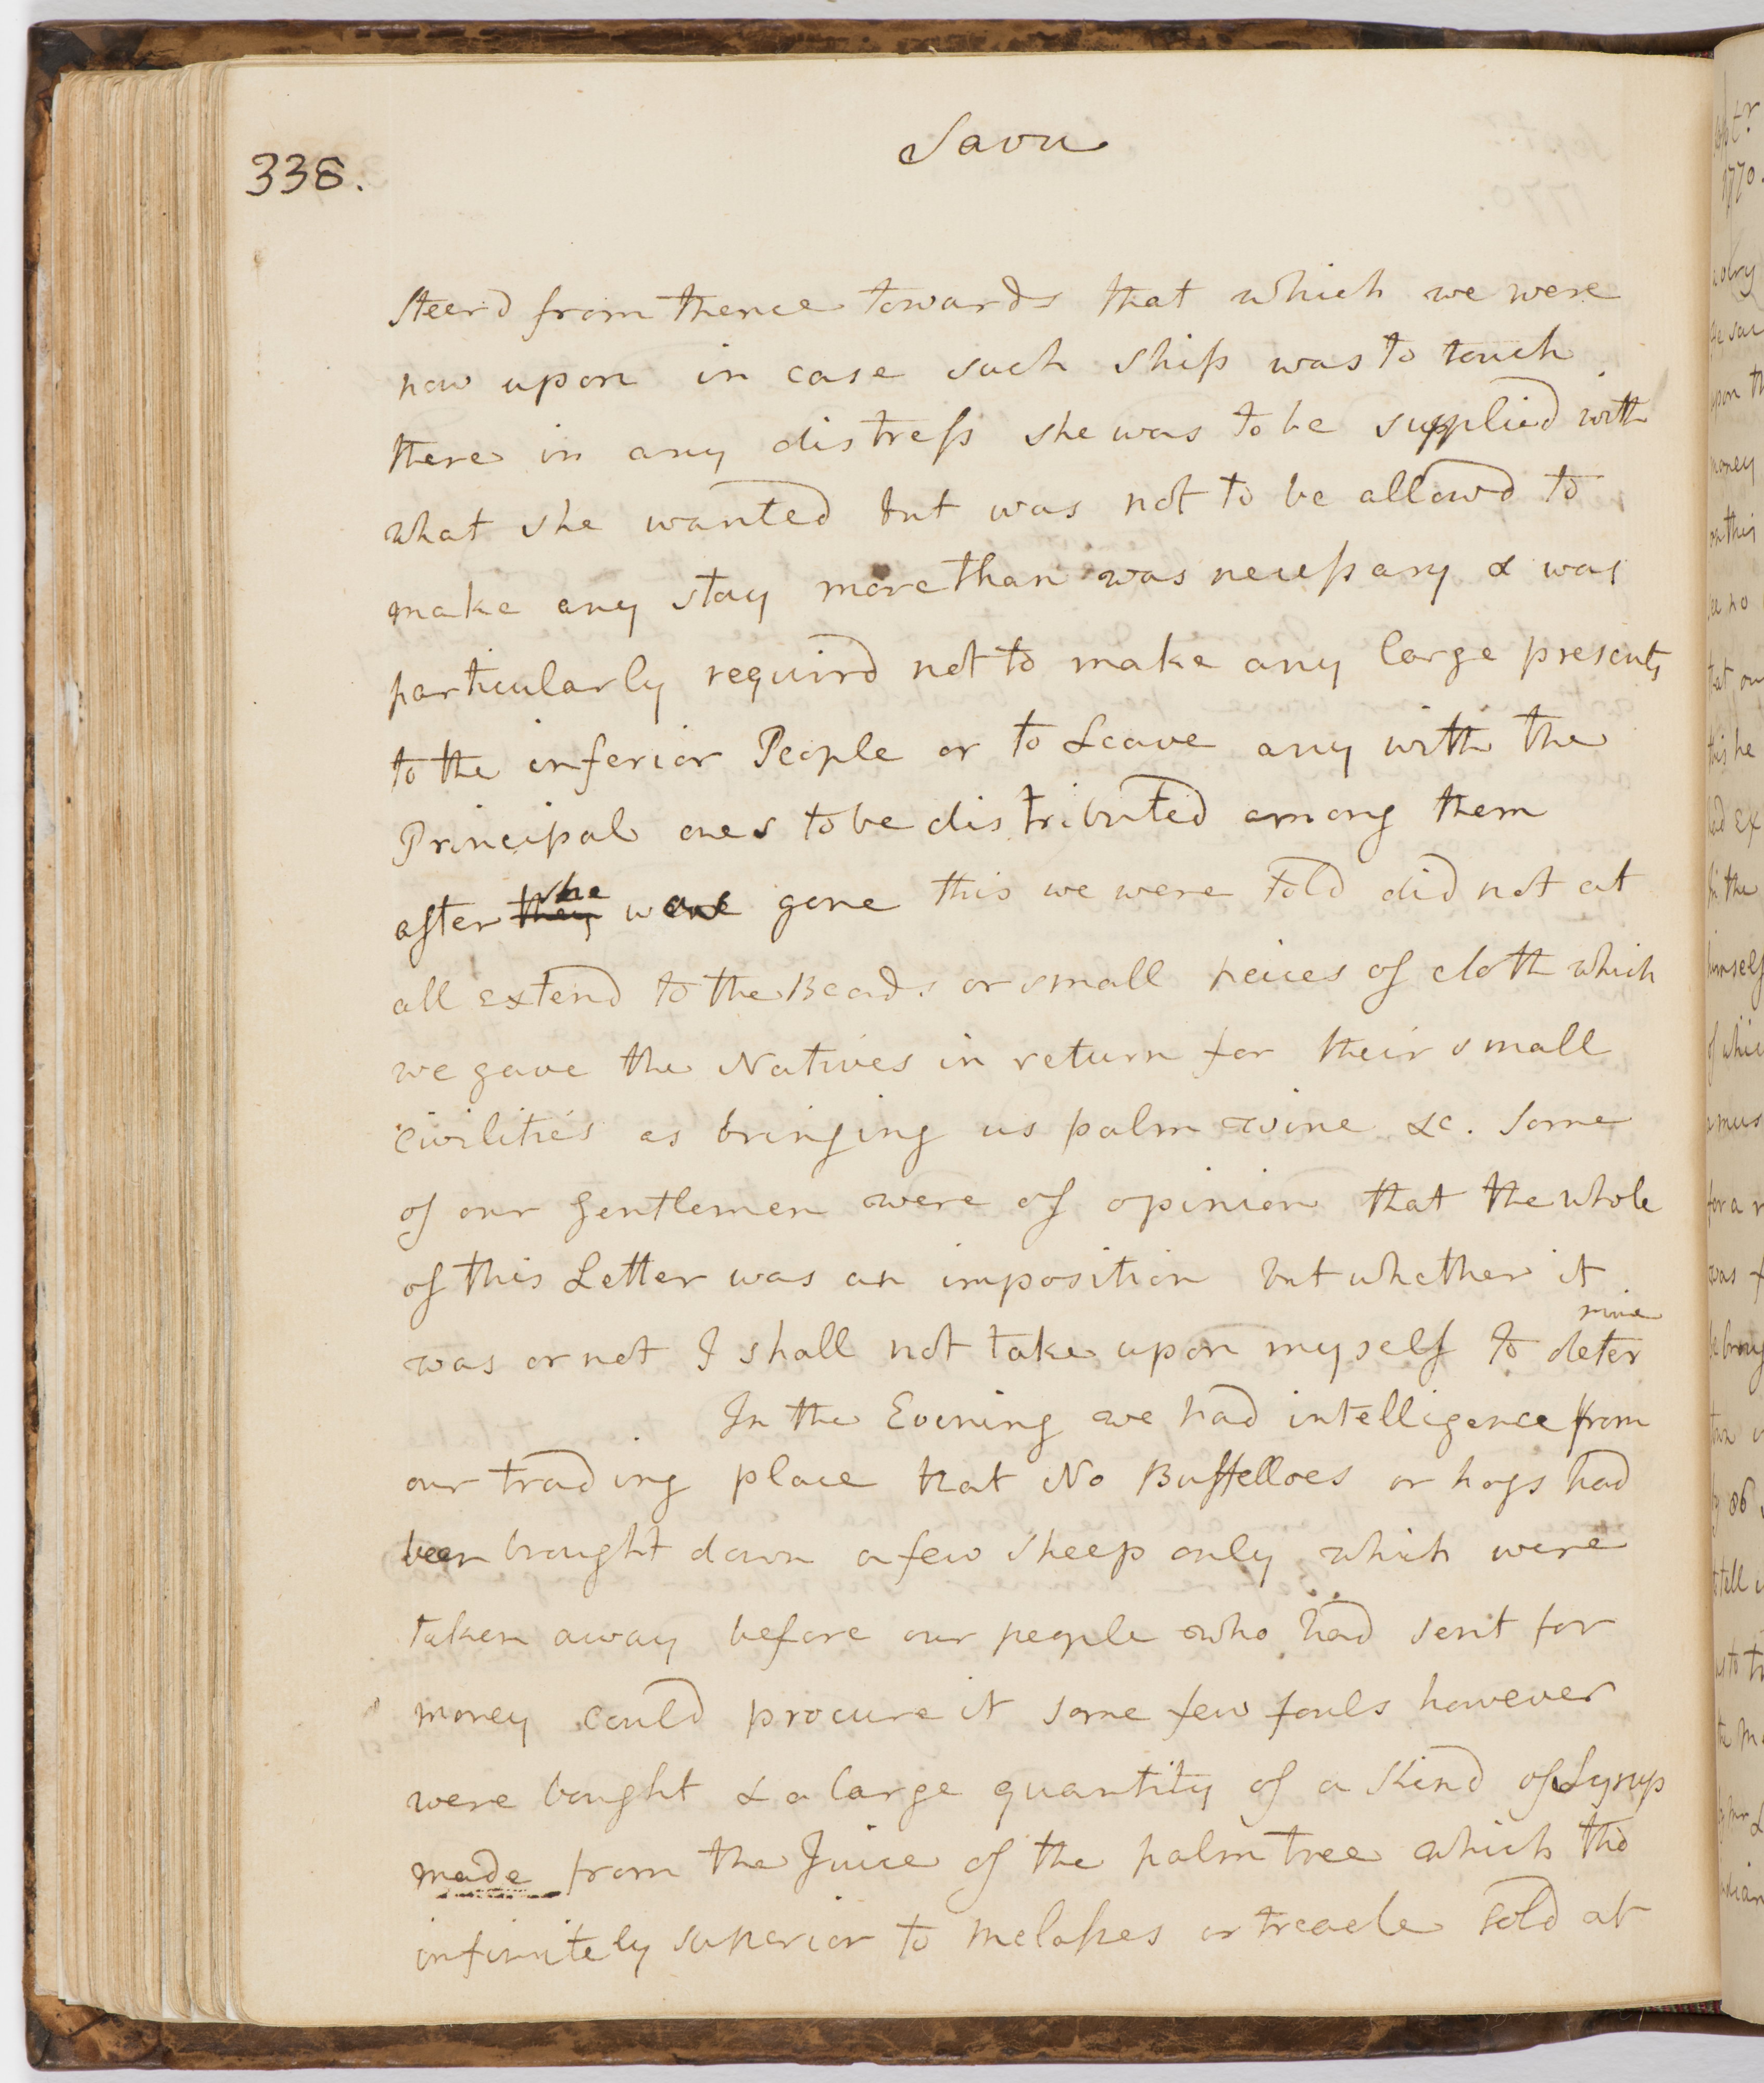 338.
Savu
steerd from thence towards that which we were
now upon in case such ship was to touch
there in any distress she was to be supplied with
what she wanted but was not to be allowd to
make any stay more than was necessary & was
particularly requird not to make any large presents
to the inferior People or to Leave any with the
Principal ones to be distributed among them
after they she was gone this we were told did not at
all extend to the Beads or small peices of cloth which
we gave the Natives in return for their small
civilities as bringing us palm wine &c. Some
of our gentlemen were of opinion that the whole
of this Letter was an imposition but whether it
was or not I shall not take upon myself to determine
In the Evening we had intelligence from
our trading place that No Buffelloes or hogs had
been brought down a few sheep only which were
taken away before our people who had sent for
money could procure it some few fouls however
were bought & a large quantity of a Kind of Syrup
made from the Juice of the palm tree which tho
infinitely superior to melasses or treacle sold at